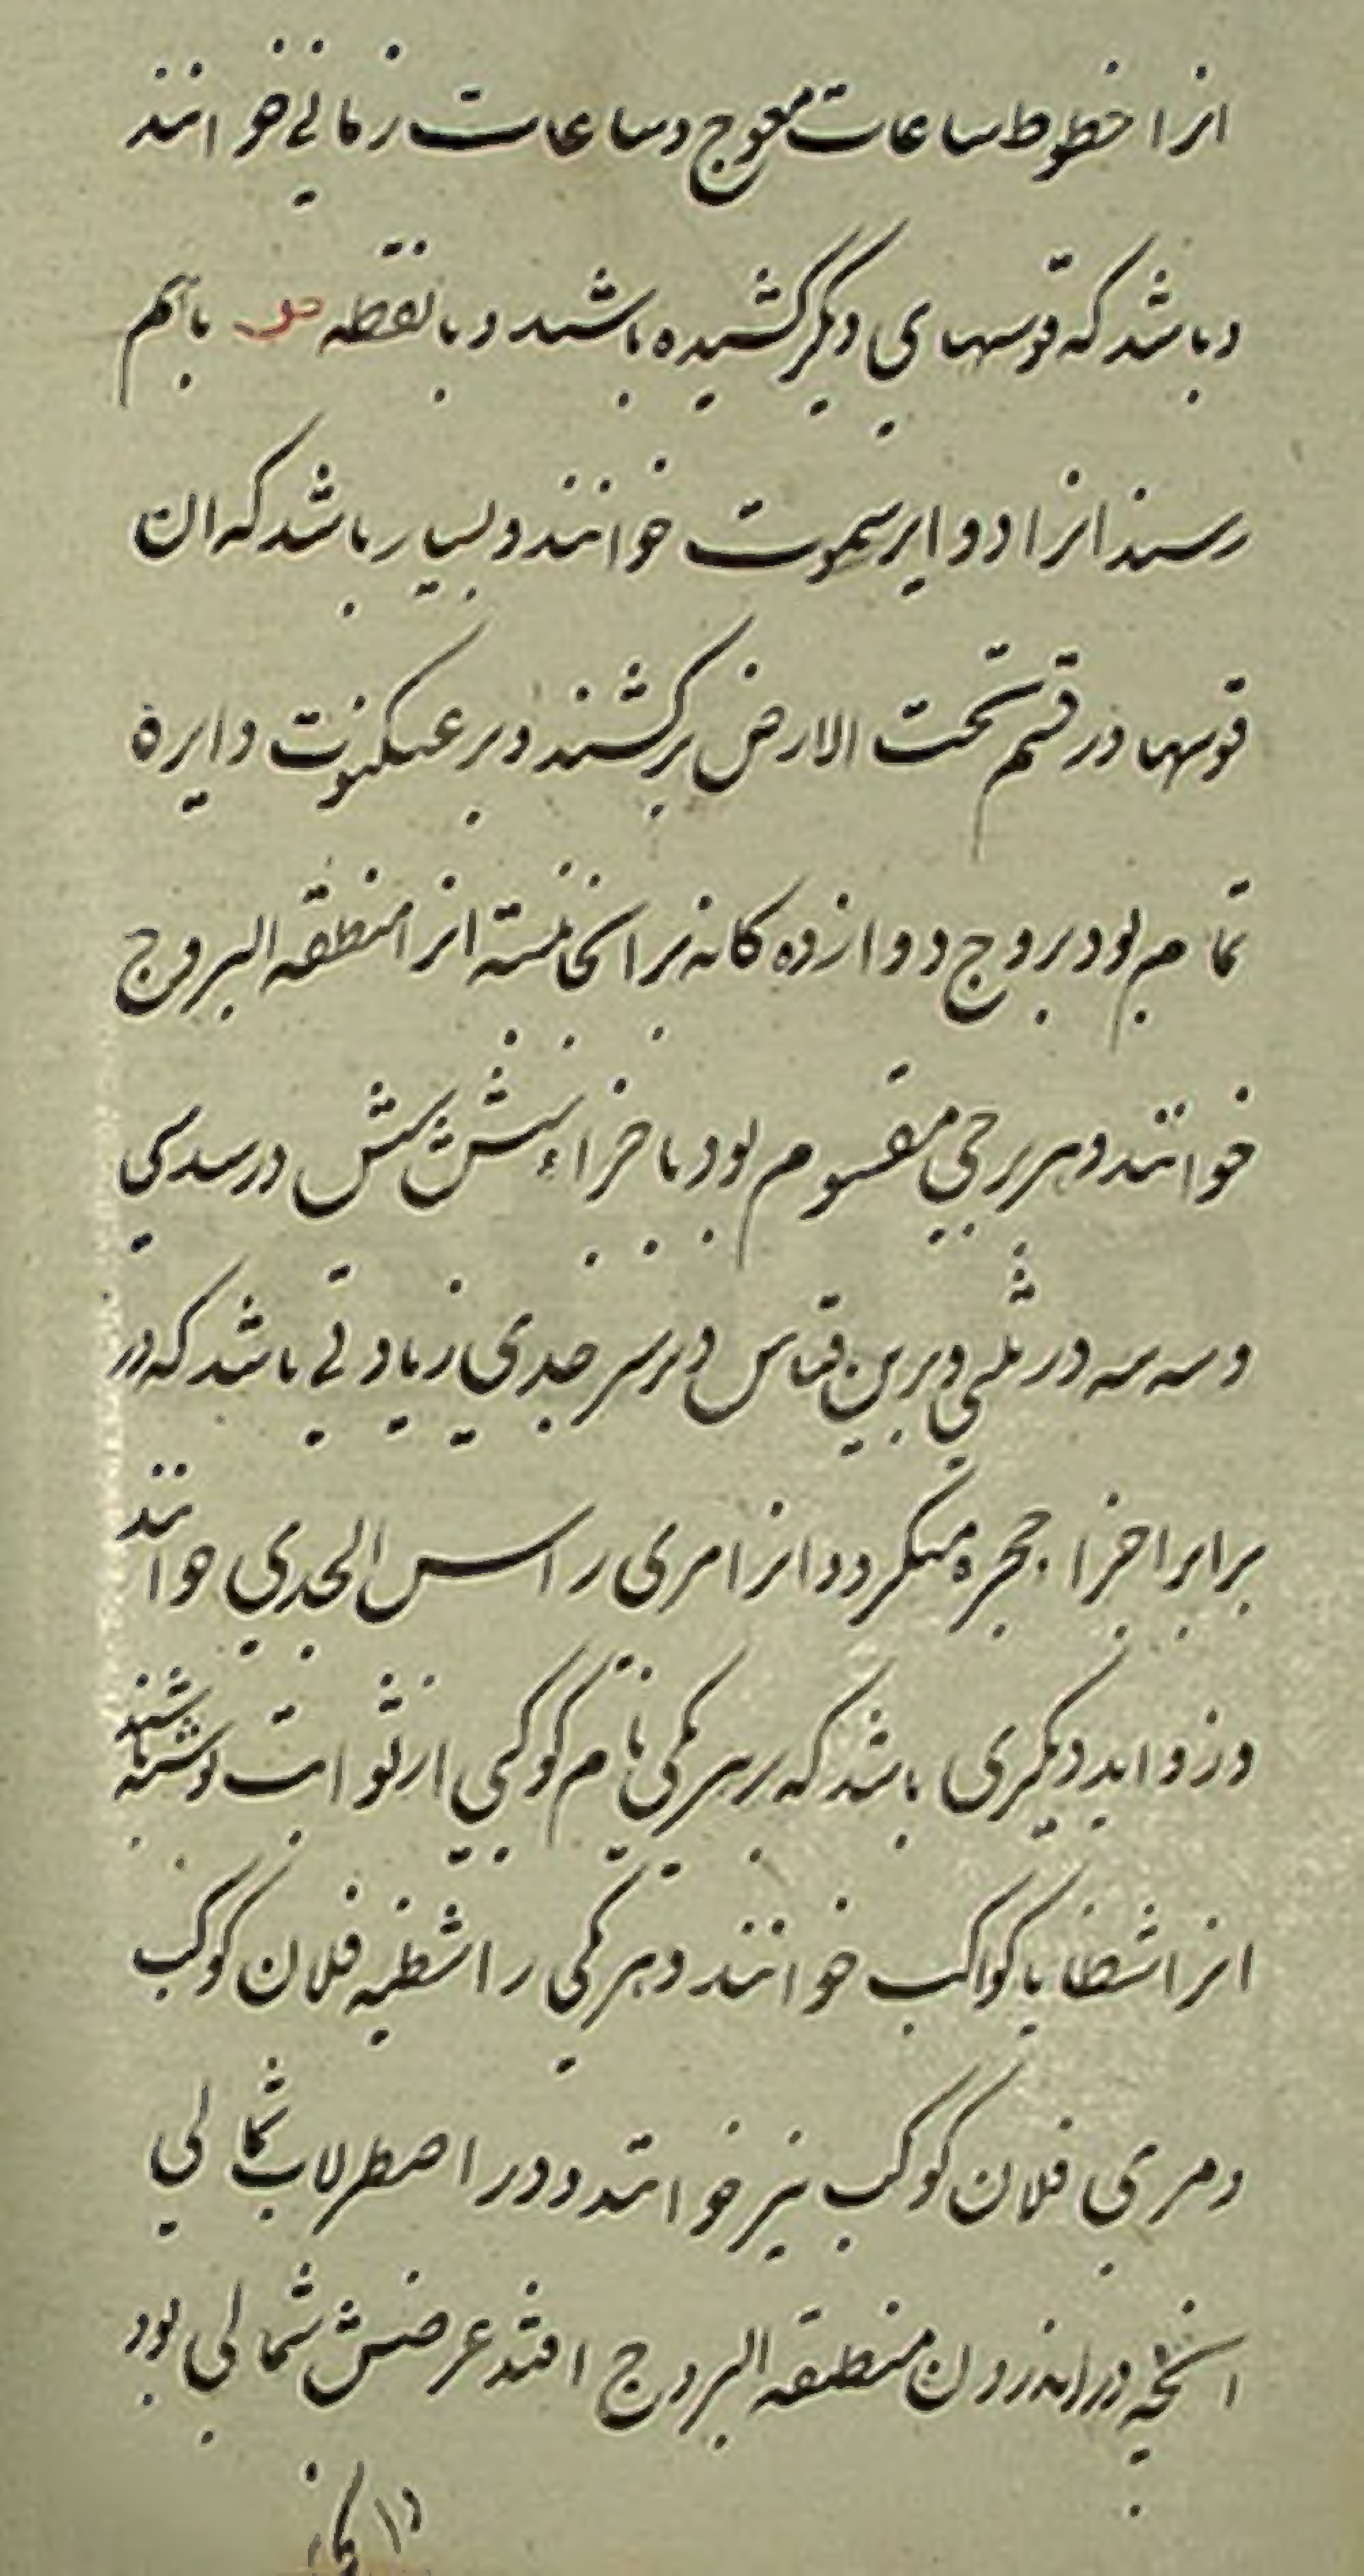 انرا خطوط ساعات معوج و ساعات زمانی خوانند
و باشد که قوسهای دیگر کشیده باشند و با نقطه باهم
رسند انرا دوایر سموت خوانند و بسیار باشد که ان
قوسها در قسم تحت الارض برکشند و بر عنکبوت دایرۀ
تمام بود بروج دوازده کانه بر انجا نبشته انرا منطقه البروج
خوانند و هر برجی مقسوم بود باجزاء شش شش در سدسی
و سه سه در ثلثی و برین قیاس و بر سر جدی زیادتی باشد که در
برابر اجزا حجره میکردد انرا مری راس الجدی خوانند
و زواید دیکری باشد که بر هر یکی نام کوکبی از ثوابت نوشته باشند
انرا شظایا کواکب خوانند و هر یکی را شظیه فلان کوکب
و مری فلان کوکب نیز خوانند و در اصطرلاب شمالی
انچه در اندرون منطقه البروج افتد عرضش شمالی بود